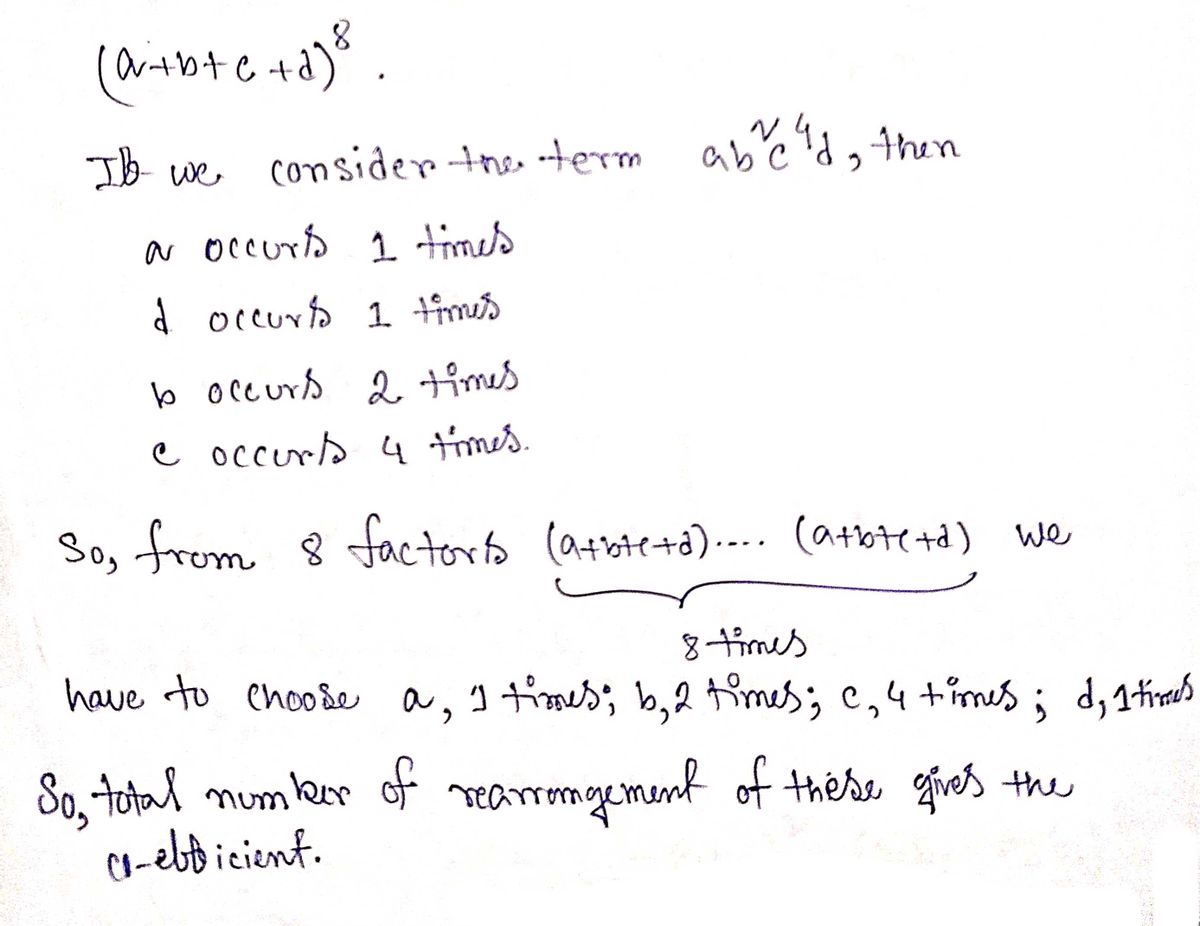 (a+b+c+d)⁸.
If we consider the term ab²c⁴d, then
a occurs 1 times
d occurs 1 times
b occurs 2 times
c occurs 4 times.
So, from 8 factors (a+b+c+d)..... (a+b+c+d) we
8 times
have to choose a, 1 times; b, 2 times; c, 4 times; d, 1 times
So, total number of rearrangement of these gives the
co-efficient.